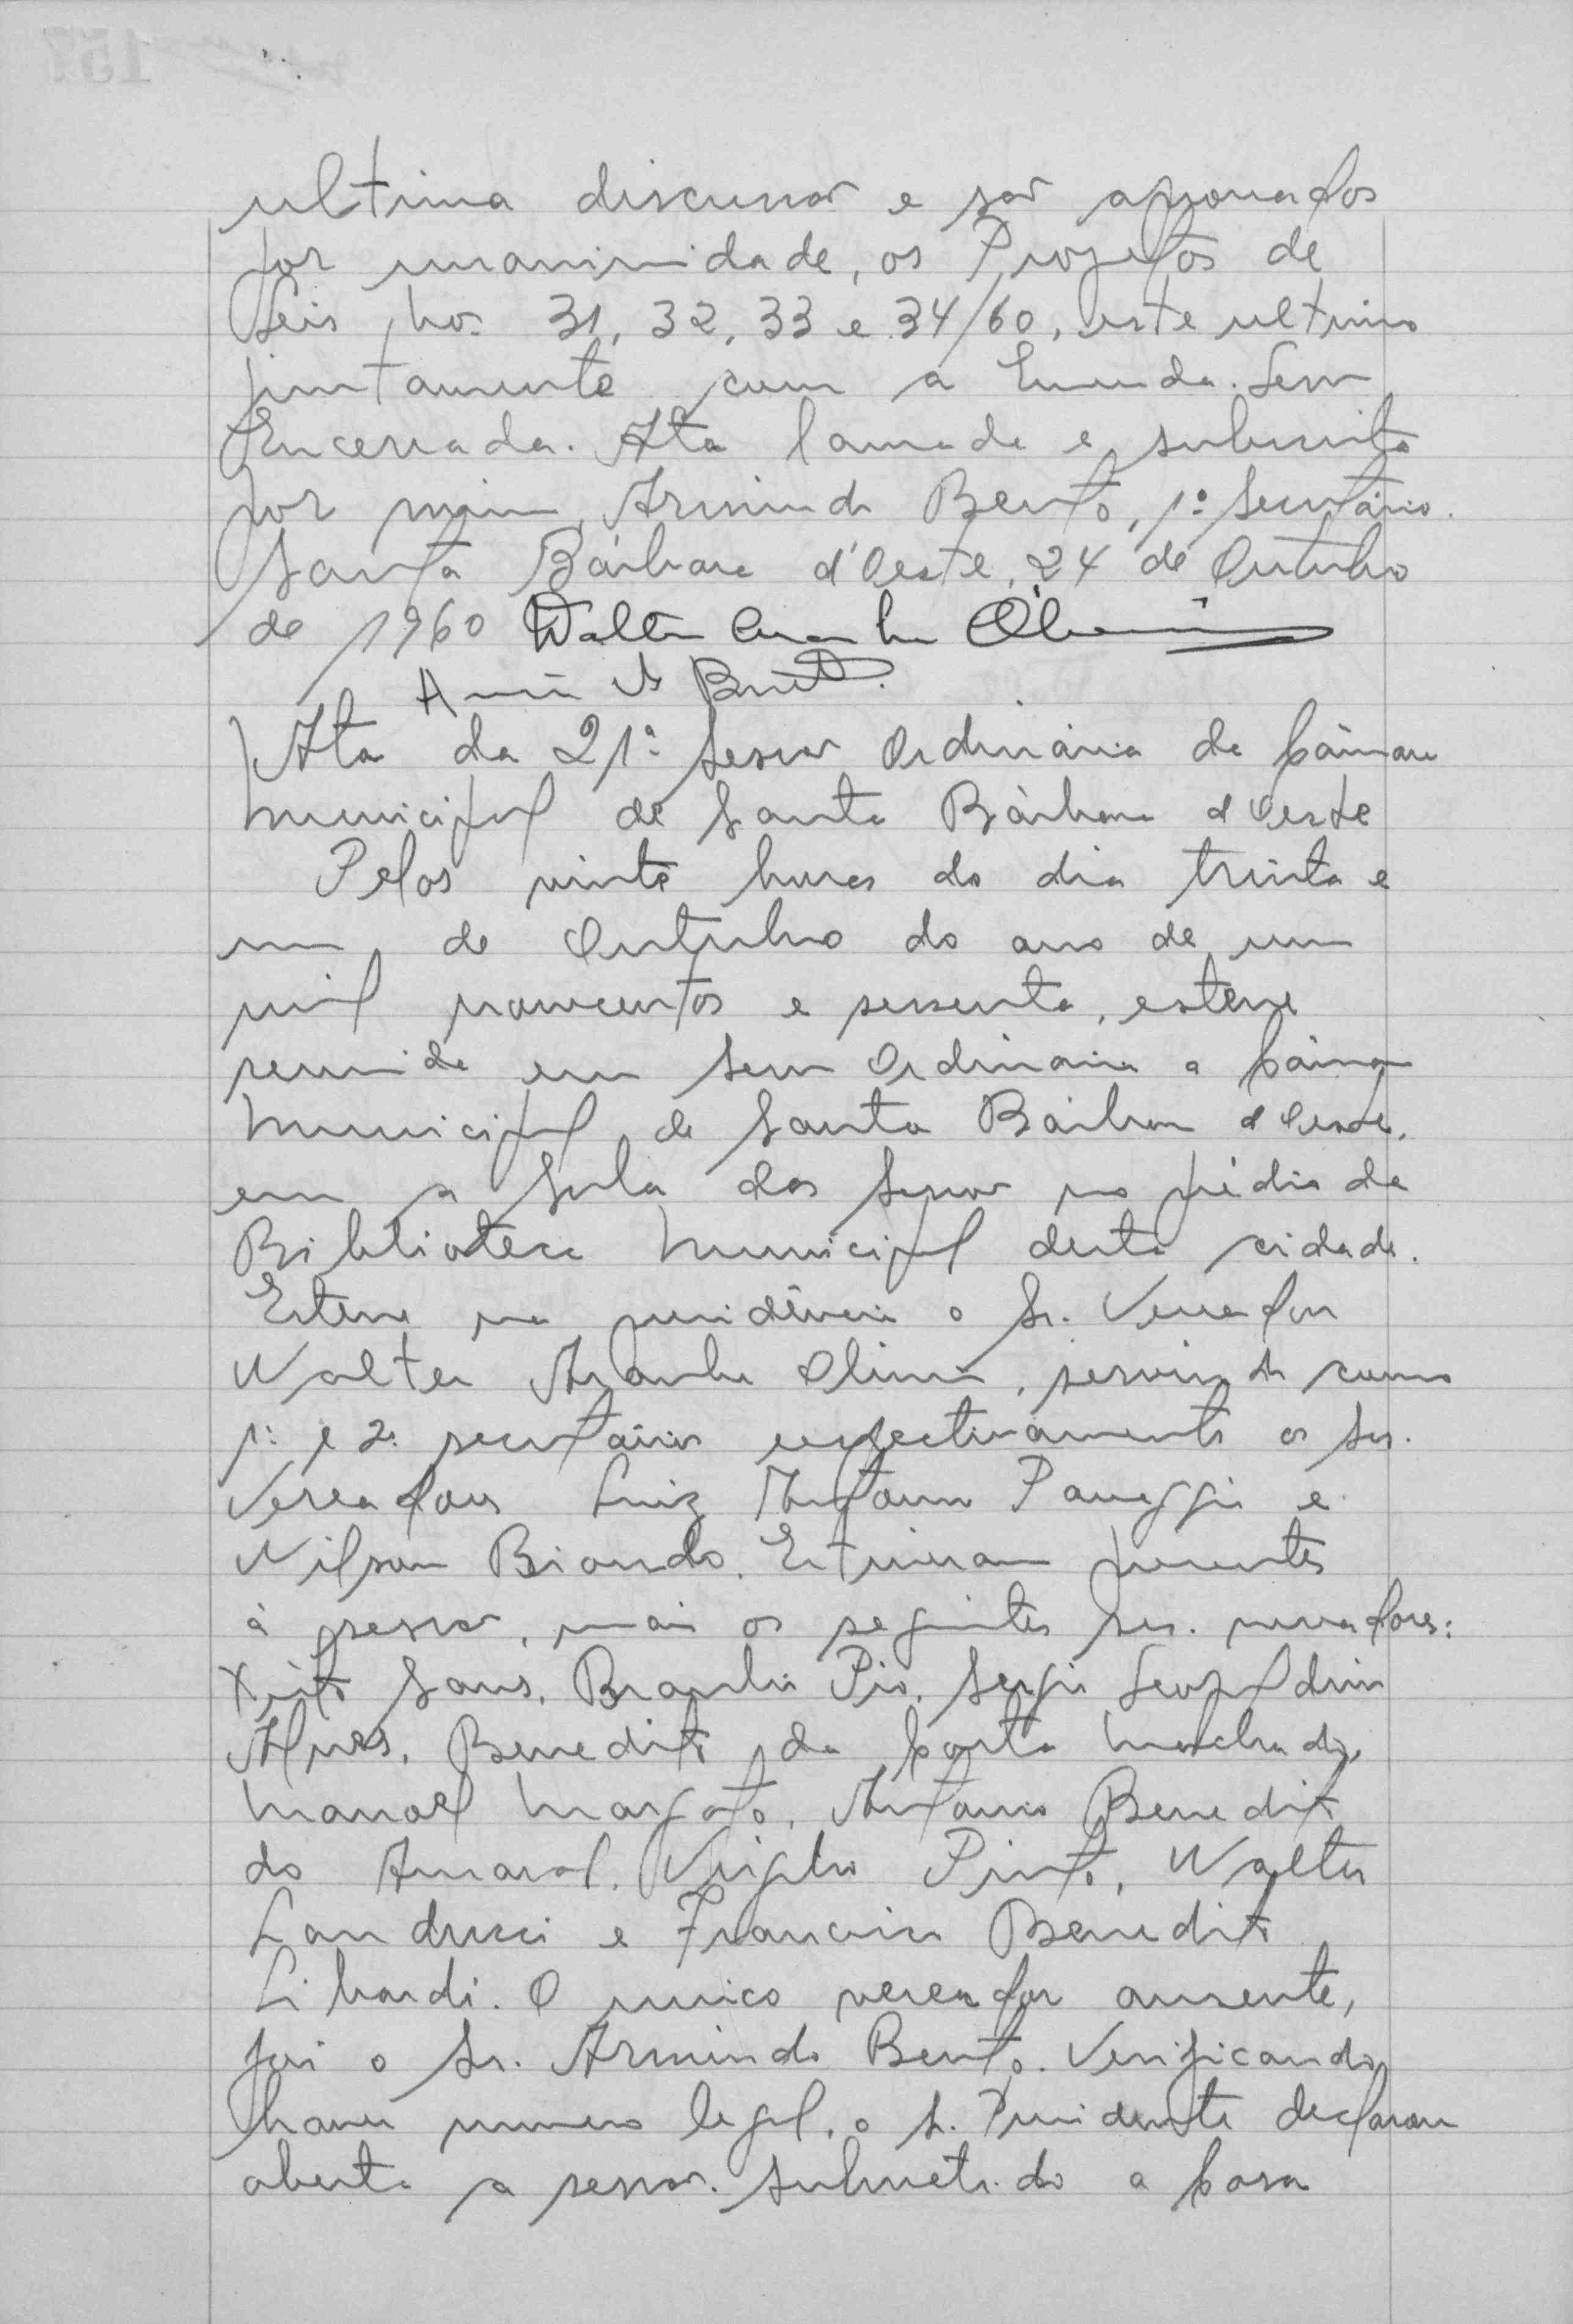 ultima discussão e são aprovados
por unanimidade, os Projetos de
Leis nos. 31, 32, 33 e 34/60, este ultimo
juntamente com a Emenda. Sessão
Encerrada. Ata lavrada e subscrita
por mim, Armindo Bento, 1º Secretário.
Santa Bárbara d'Oeste, 24 de Outubro
de 1960 Walter Aranha Oliveira
Armindo Bento
Ata da 21ª Sessão Ordinária da Câmara
Municipal de Santa Bárbara d'Oeste
Pelas vinte horas do dia trinta e
um de Outubro do ano de um
mil novecentos e sessenta, esteve
reunida em Sessão Ordinária a Câmara
Municipal de Santa Bárbara d'Oeste,
em a Sala das Sessões no prédio da
Biblioteca Municipal desta cidade.
Esteve na presidência o Sr. Vereador
Walter Aranha Oliveira, servindo como
1º e 2º secretários respectivamente os Srs.
Vereadores Luiz Antonio Panaggio e
Nilson Biondo. Estiveram presentes
à sessão, mais os seguintes srs. vereadores:
Xisto Sans, Braulio Pio, Sergio Leopoldino
Alves, Benedito da Costa Machado,
Manoel Margato, Antonio Benedito
do Amaral, Virgilio Pinto, Walter
Landucci e Francisco Benedito
Libardi. O unico vereador ausente,
foi o Sr. Armindo Bento. Verificando
haver numero legal, o S. Presidente declarou
aberta a sessão. Submetido a Casa